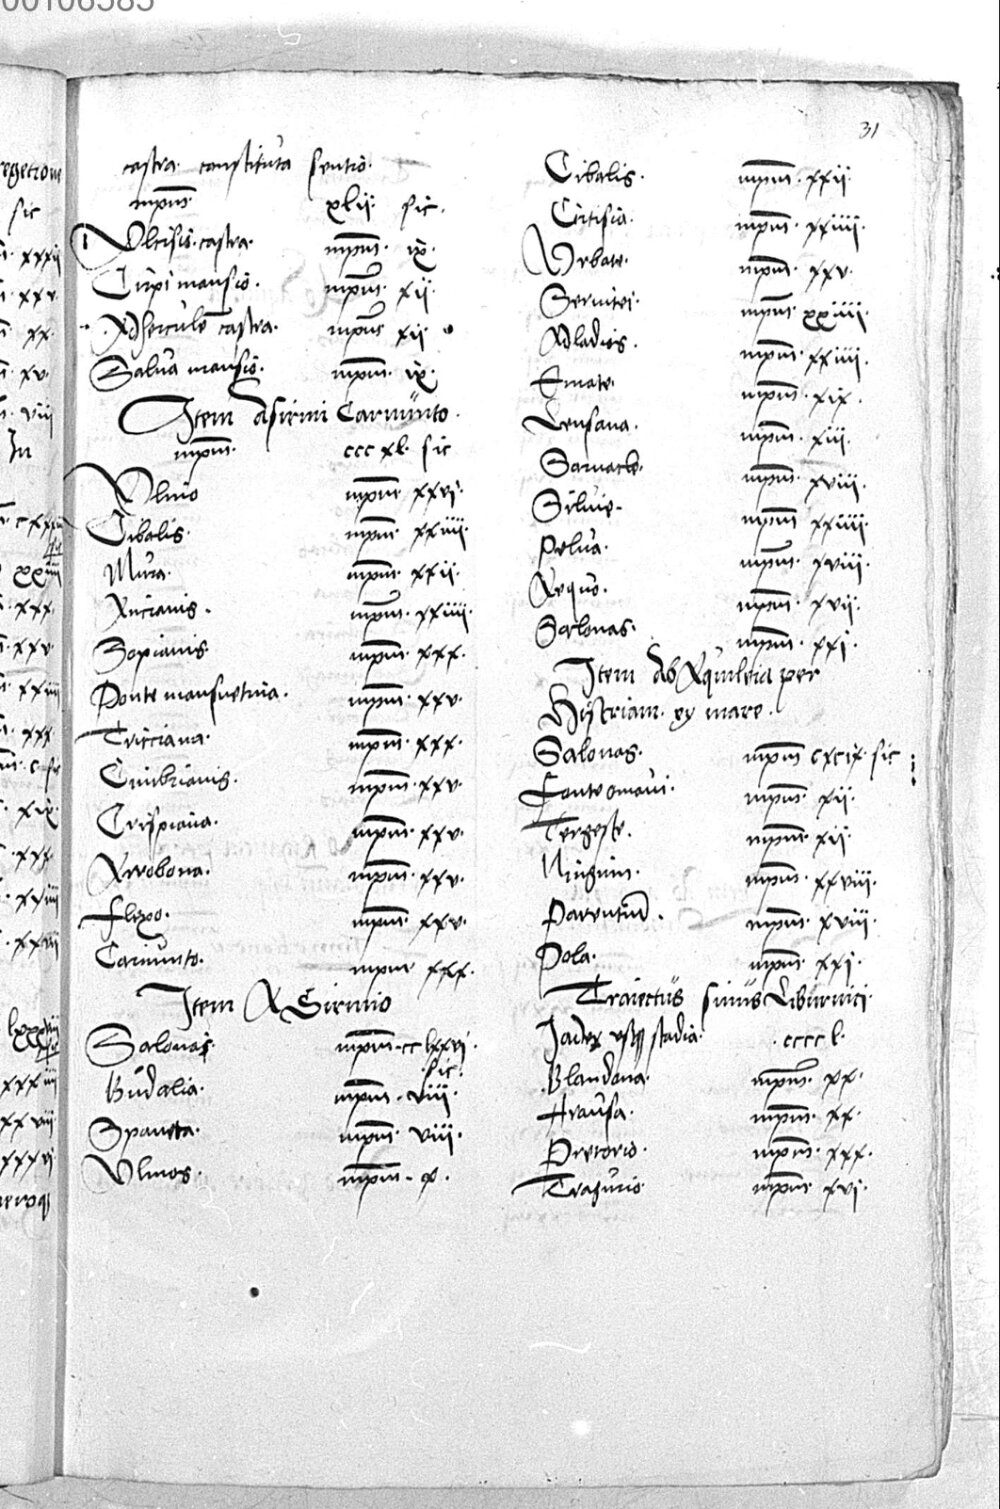 00106385
31
castra. constituta sentio.
mpm xlii. sic.
Vlcisis. castra. mpm. ix.
Cirpi mansio. mpm. xii.
Ad herculē castra. mpm xii.
Salua mansio. mpm. ix.
Item Asirmi Carnunto.
mpm. ccc xl. sic
Vlmo mpm xxvi.
Cibalis. mpm. xxiiii.
Mursa. mpm. xxii.
Antianis. mpm. xxiiii.
Sopianis. mpm. xxx.
Ponte mansuetina. mpm. xxv.
Tricciana. mpm. xxx.
Cimbrianis. mpm. xxv.
Crispiana. mpm. xxv.
Arrobona. mpm. xxv.
Flexo. mpm xxv.
Carnunto. mpm xxx.
Item A Sirmio
Salonas. mpm. cc lxxvi.
sic.
Budalia. mpm. viii.
Spaneta. mpm. viii.
Vlmos. mpm. x.
Cibalis. mpm. xxii.
Cirtisia. mpm. xxiiii.
Vrbate. mpm. xxv.
Seruitei. mpm. xxiiii.
Adladios. mpm. xxiiii.
Emate. mpm. xix.
Lensana. mpm. xiii.
Sarnacle. mpm. xviii.
Siluie. mpm xxiiii.
Pelua. mpm. xviii.
Aequo. mpm. xvii.
Salonas. mpm. xxi.
Item Ab Aquileia per
Histriam. ex mare.
Salonas. mpm cxcix. sic
Fonte omaui. mpm xii.
Tergeste. mpm xii.
Ningum. mpm. xxviii.
Parentiū. mpm. xviii.
Pola. mpm. xxi.
Traiectus sinus Liburnici
Iader usq; stadia. cccc l.
Blandona. mpm. xx.
Arausa. mpm. xx.
Pretorio. mpm. xxx.
Tragurio mpm xvi.